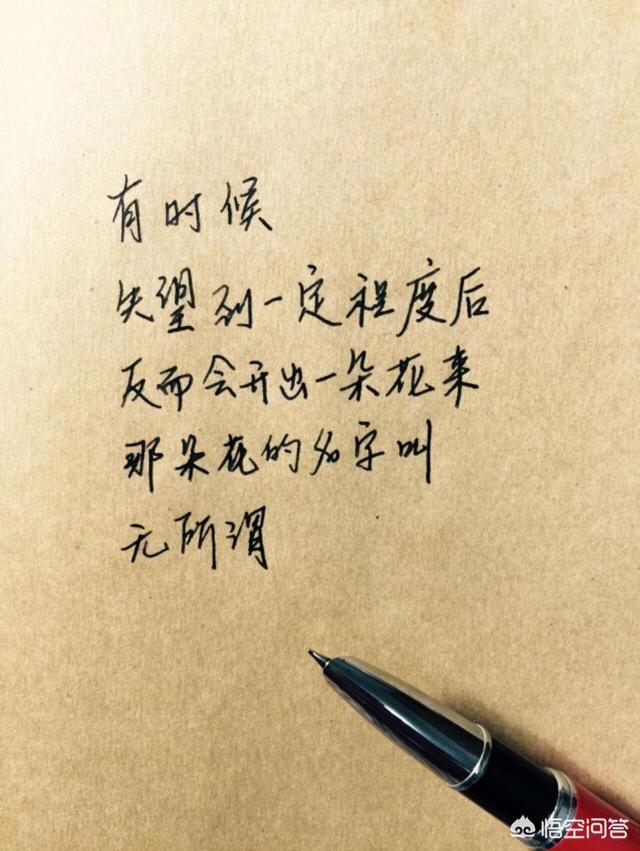 有时候
失望到一定程度后
反而会开出一朵花来
那朵花的名字叫
无所谓
悟空问答